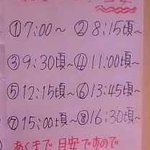 ①7:00～ ②8:15頃～
③9:30頃～ ④11:00頃～
⑤12:15頃～ ⑥13:45頃～
⑦15:00頃～ ⑧16:30頃～
あくまで目安ですので